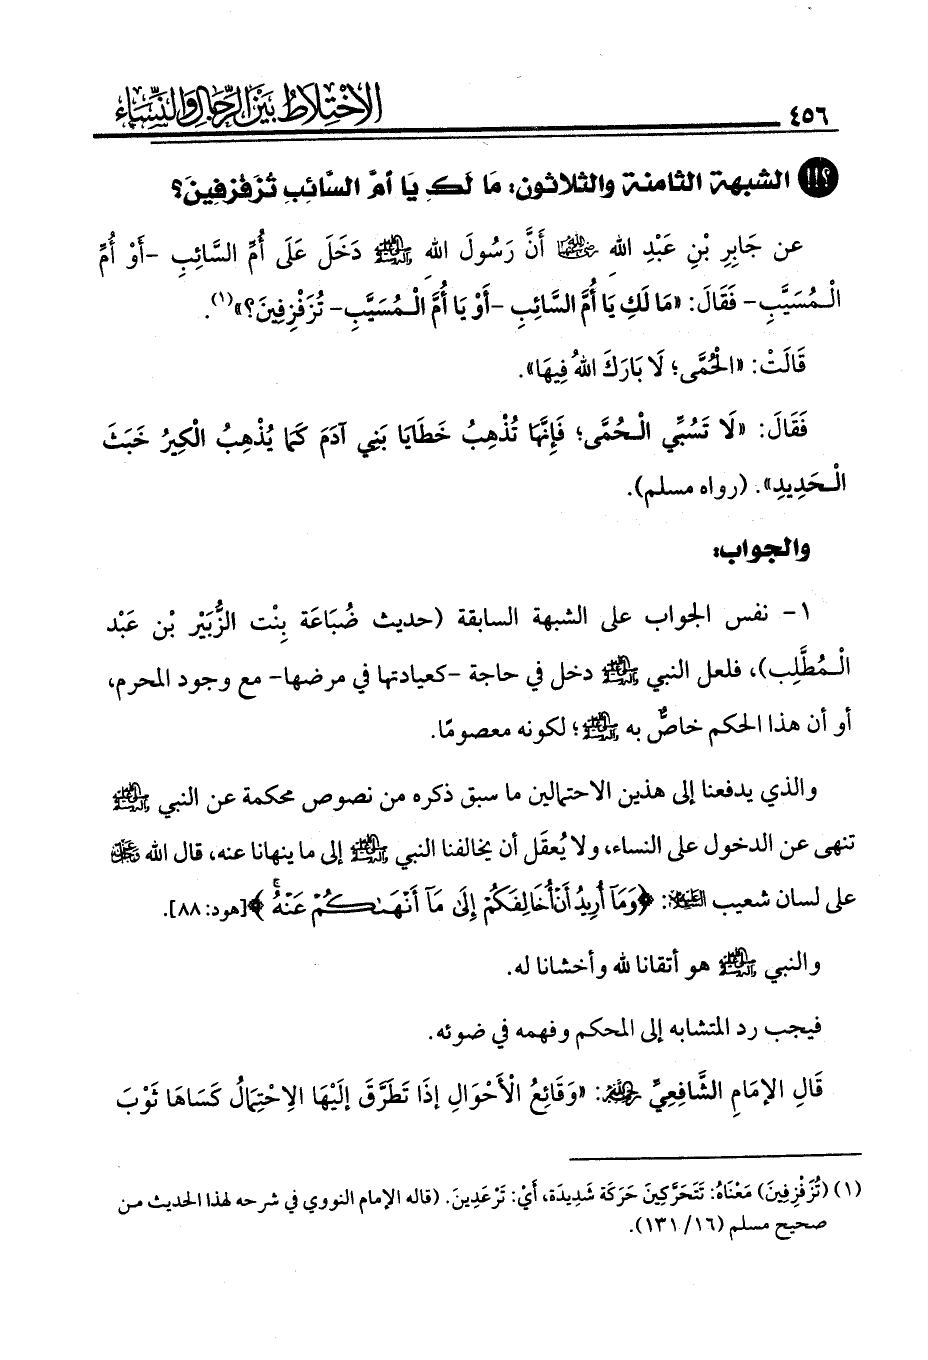 ٤٥٦
الاختلاط بين الرجال والنساء
؟!! الشبهة الثامنة والثلاثون: مَا لَكِ يَا أمَّ السَّائِبِ تُزَفْزِفِينَ؟
عن جَابِرِ بْنِ عَبْدِ اللهِ رضي الله عنهما أَنَّ رَسُولَ اللهِ ﷺ دَخَلَ عَلَى أُمِّ السَّائِبِ -أَوْ أُمِّ
الْـمُسَيَّبِ- فَقَالَ: «مَا لَكِ يَا أُمَّ السَّائِبِ -أَوْ يَا أُمَّ الْـمُسَيَّبِ- تُزَفْزِفِينَ؟»(١).
قَالَتْ: «الْحُمَّى؛ لَا بَارَكَ اللهُ فِيهَا».
فَقَالَ: «لَا تَسُبِّي الْـحُمَّى؛ فَإِنَّهَا تُذْهِبُ خَطَايَا بَنِي آدَمَ كَمَا يُذْهِبُ الْكِيرُ خَبَثَ
الْـحَدِيدِ». (رواه مسلم).
والجواب:
١- نفس الجواب على الشبهة السابقة (حديث ضُبَاعَة بِنْت الزُّبَيْر بْن عَبْد
الْـمُطَّلِب)، فلعل النبي ﷺ دخل في حاجة -كعيادتها في مرضها- مع وجود المحرم،
أو أن هذا الحكم خاصٌّ به ﷺ؛ لكونه معصومًا.
والذي يدفعنا إلى هذين الاحتمالين ما سبق ذكره من نصوص محكمة عن النبي ﷺ
تنهى عن الدخول على النساء، ولا يُعقَل أن يخالفنا النبي ﷺ إلى ما ينهانا عنه، قال الله عز وجل
على لسان شعيب عليه السلام: ﴿وَمَآ أُرِيدُ أَنْ أُخَالِفَكُمْ إِلَىٰ مَآ أَنْهَىٰكُمْ عَنْهُ ۚ﴾ [هود: ٨٨].
والنبي ﷺ هو أتقانا لله وأخشانا له.
فيجب رد المتشابه إلى المحكم وفهمه في ضوئه.
قَالِ الإِمَامِ الشَّافِعِيِّ رحمه الله: «وَقَائِعُ الْأَحْوَالِ إِذَا تَطَرَّقَ إِلَيْهَا الِاحْتِمَالُ كَسَاهَا ثَوْبَ
(١) (تُزَفْزِفِينَ) مَعْنَاهُ: تَتَحَرَّكِينَ حَرَكَة شَدِيدَة، أَيْ: تَرْعَدِينَ. (قاله الإمام النووي في شرحه لهذا الحديث من
صحيح مسلم (١٦/ ١٣١).